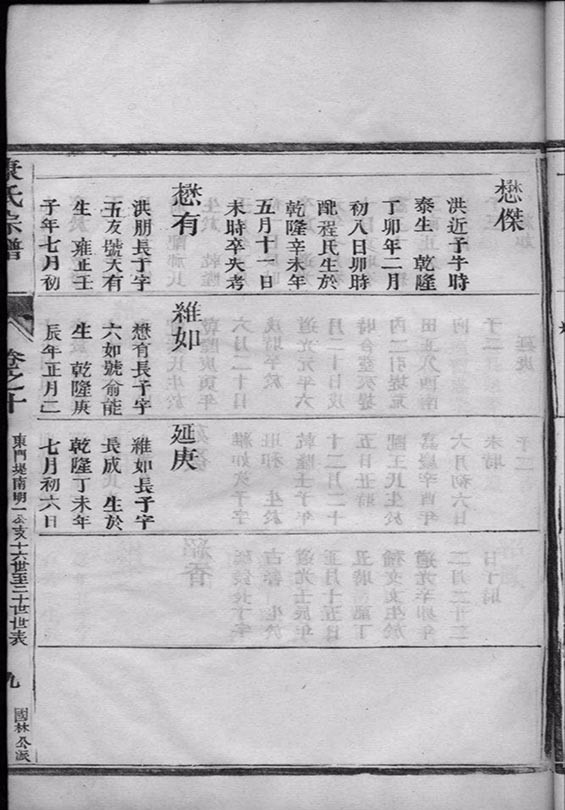 懋傑
洪近子字時
泰生 乾隆
丁卯年二月
初八日卯時
配程氏生於
乾隆辛未年
五月十一日
未時卒失考
懋有
洪朋長子字
五友號大有
生 雍正壬
子年七月初
維如
懋有長子字
六如號俞能
生 乾隆庚
辰年正月二
延庚
維如長子字
長成 生於
乾隆丁未年
七月初六日
康氏宗譜
卷之十
東門堤南明一公亥十六世至二十世世表
九
國林公派